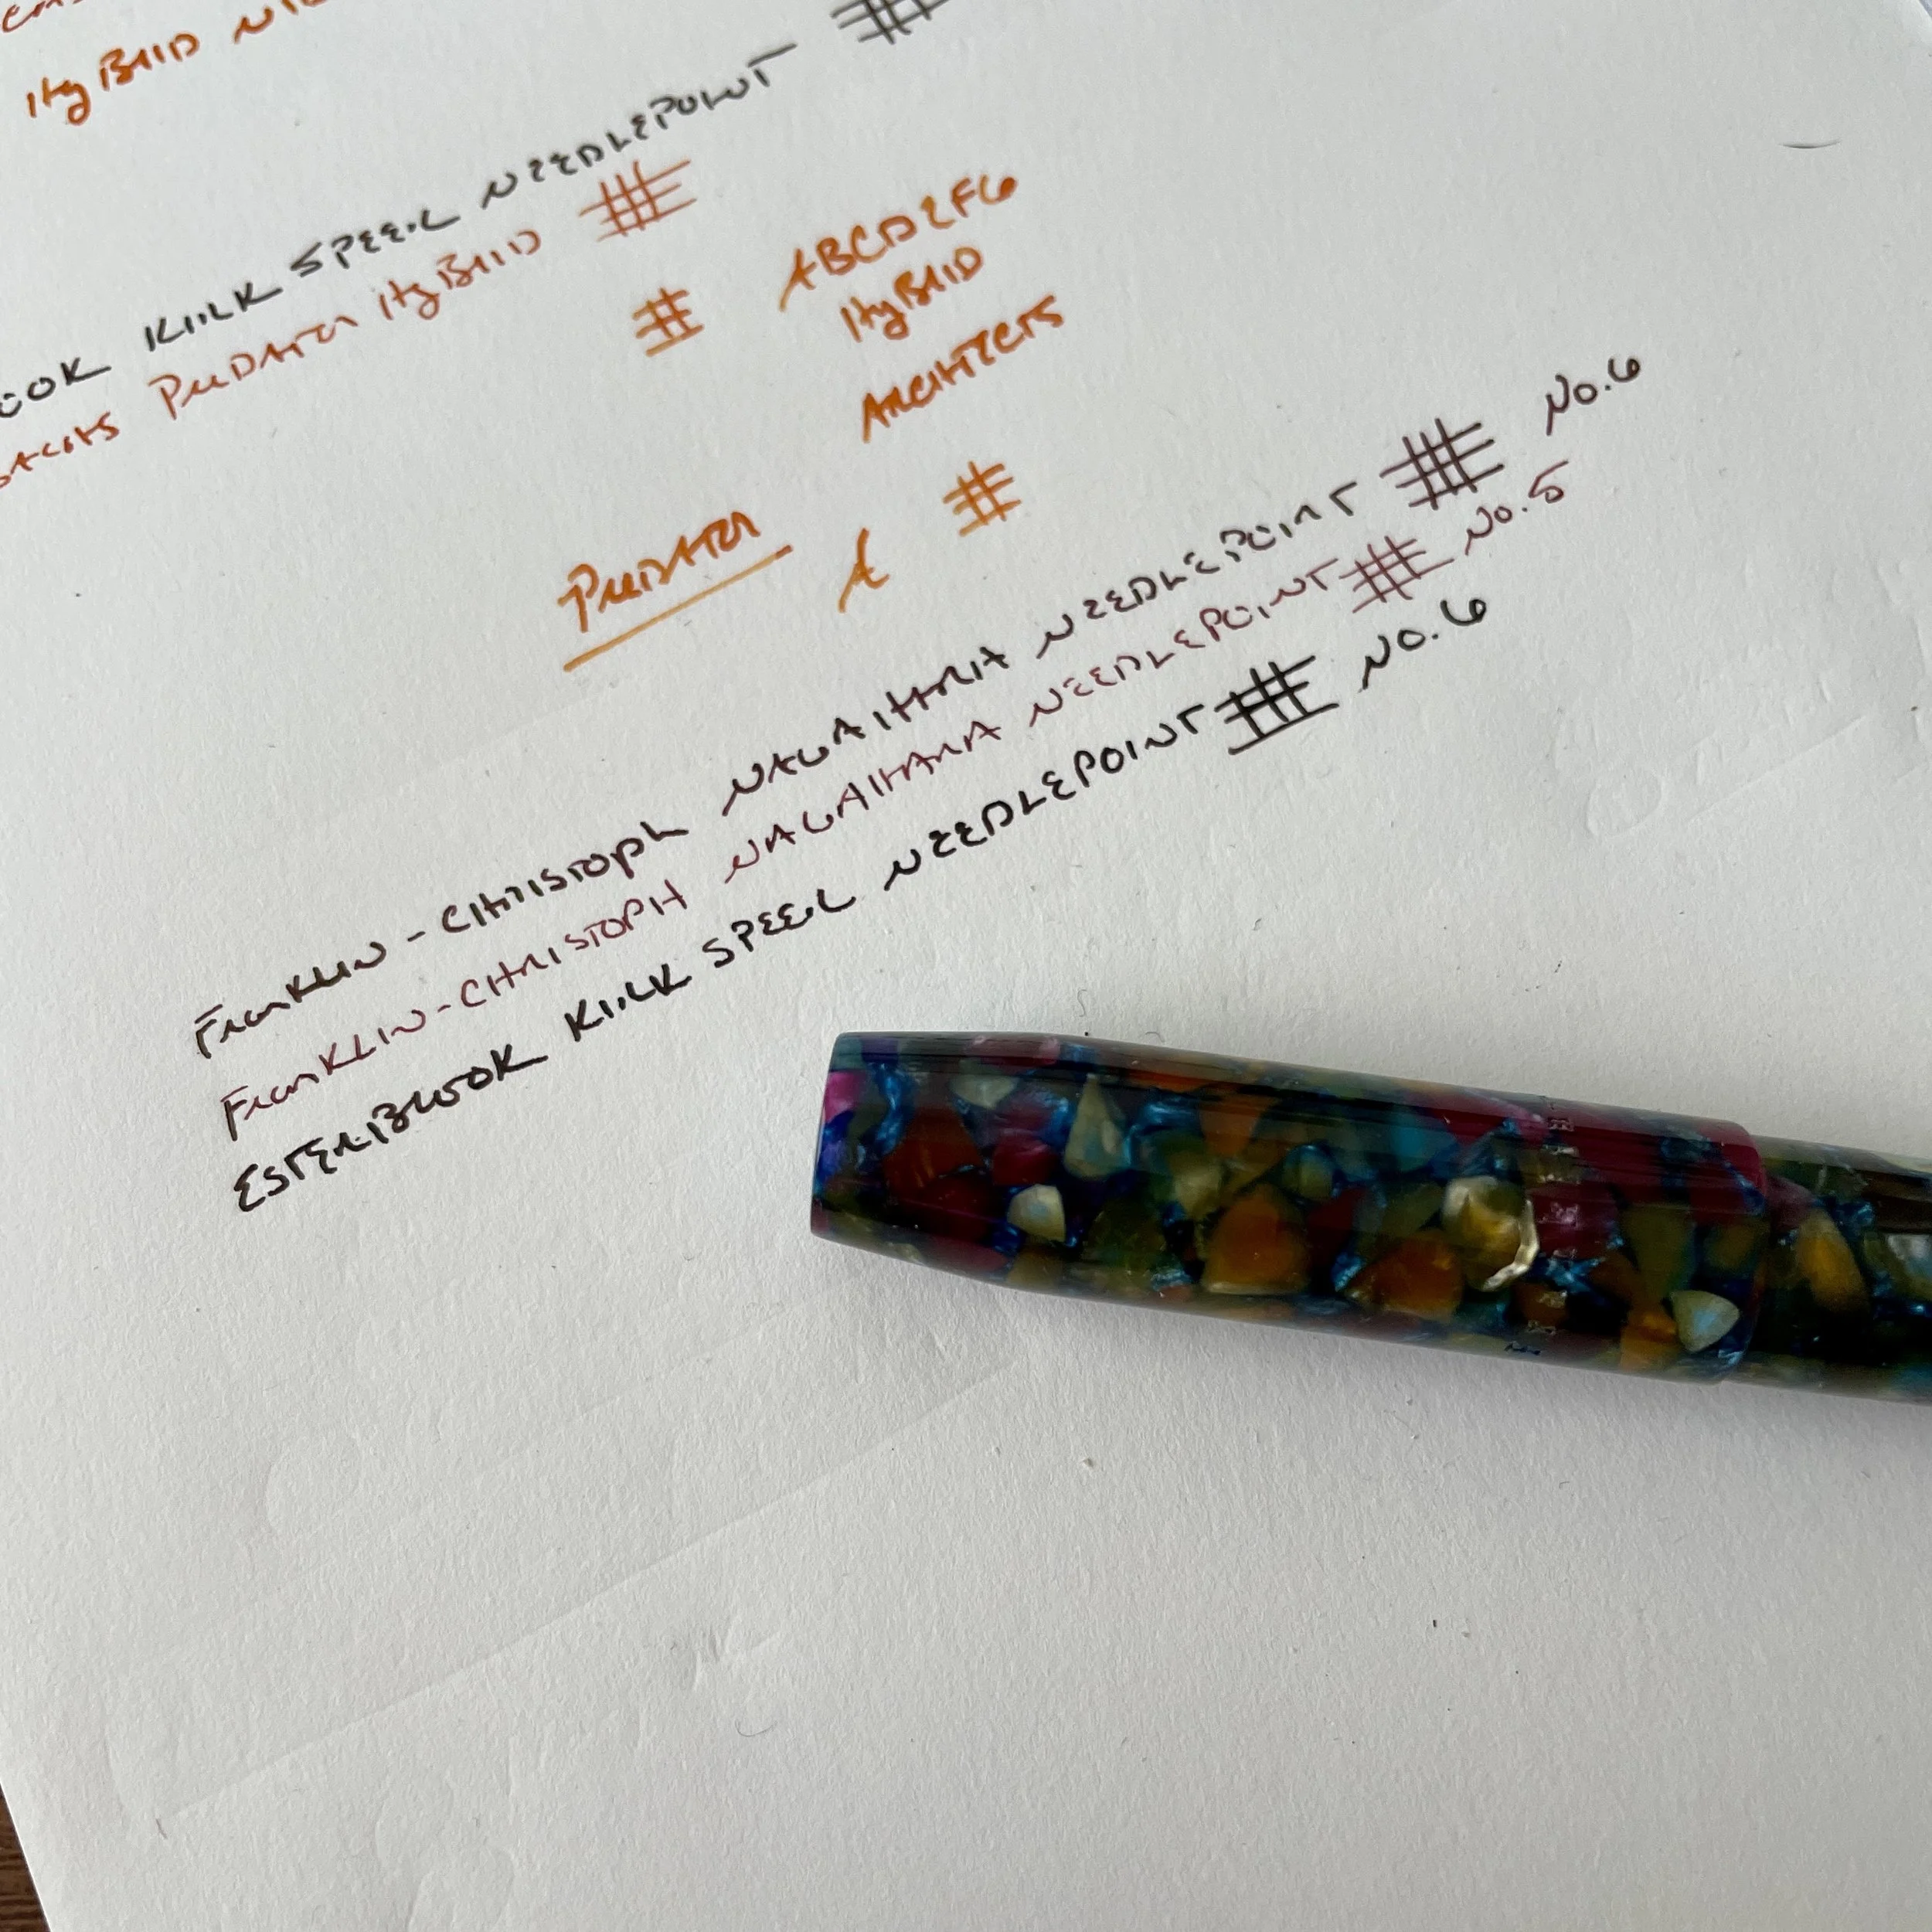 HyBRID
OOK KIRK SPEER NEEDLEPOINT
PREDATOR HyBRID
ABCDEFG
HyBRID
ARCHITECTS
PREDATOR A
FRANKLIN-CHRISTOPh NAGAHARA NEEDLEPOINT No.6
FRANKLIN-CHRISTOPH NAGAHARA NEEDLEPOINT No.5
ESTERBROOK KIRK SPEER NEEDLEPOINT No.6